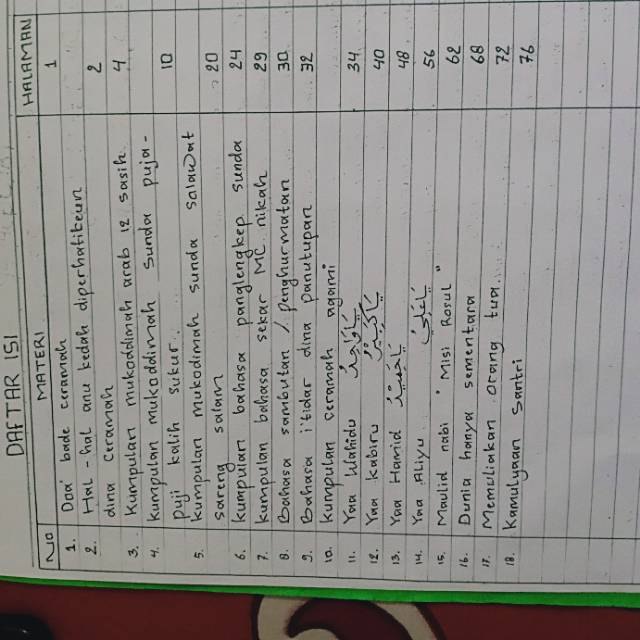 DAFTAR ISI
NO MATERI HALAMAN
1. Doa bade ceramah 1
2. Hal - hal anu kedah diperhatikeun 2
dina ceramah
3. Kumpulan mukoddimah arab 12 sasih 4
4. Kumpulan mukoddimah sunda puja -
puji kalih sukur. 10
5. Kumpulan mukodimah sunda salawat
sareng salam 20
6. Kumpulan bahasa panglengkep sunda 24
7. Kumpulan bahasa sekar MC. nikah 29
8. Bahasa sambutan / penghurmatan 30
9. Bahasa i'tidar dina panutupan 32
10. Kumpulan ceramah agami
11. Yaa Wahidu يَاوَاحِدُ 34
12. Yaa Kabiru يَاكَبِيْرُ 40
13. Yaa Hamid يَاحَمِيْدُ 48
14. Yaa Aliyu يَاعَلِيُّ 56
15. Maulid nabi " Misi Rosul " 62
16. Dunia hanya sementara 68
17. Memuliakan orang tua 72
18. Kamulyaan Santri 76